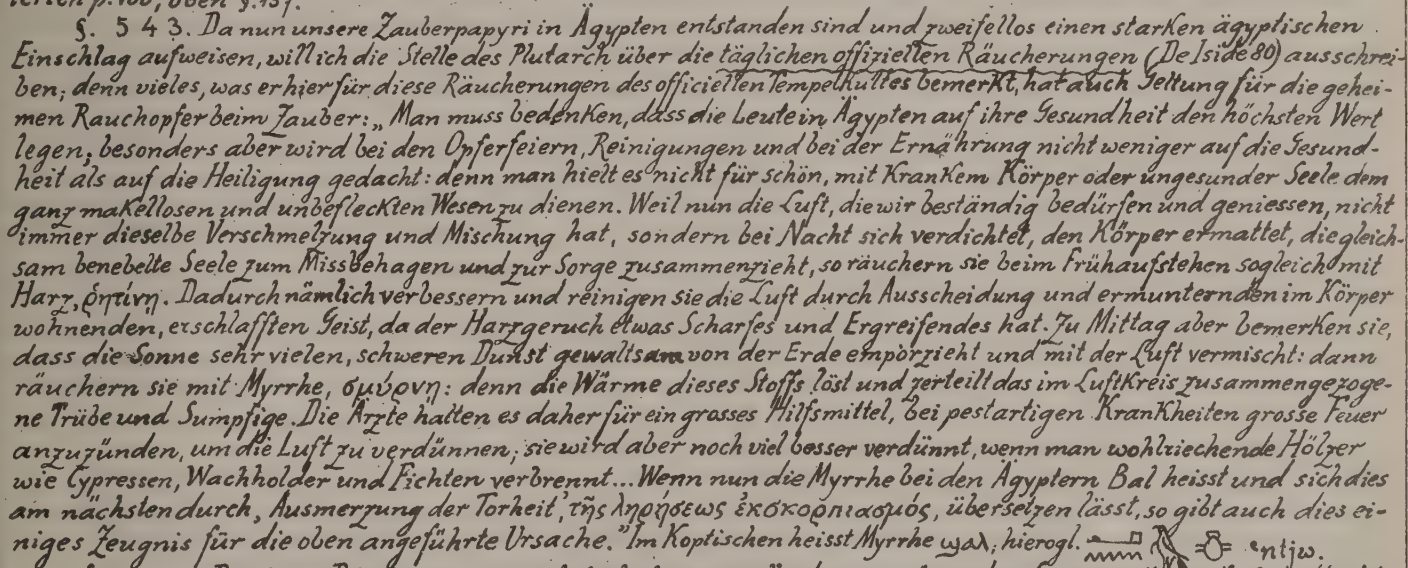 §. 543. Da nun unsere Zauberpapyri in Ägypten entstanden sind und zweifellos einen starken ägyptischen
Einschlag aufweisen, will ich die Stelle des Plutarch über die täglichen offiziellen Räucherungen (De Iside 80) ausschrei-
ben; denn vieles, was er hier für diese Räucherungen des officiellen Tempelkultes bemerkt, hat auch Geltung für die gehei-
men Rauchopfer beim Zauber: „Man muss bedenken, dass die Leute in Ägypten auf ihre Gesundheit den höchsten Wert
legen; besonders aber wird bei den Opferfeiern, Reinigungen und bei der Ernährung nicht weniger auf die Gesund-
heit als auf die Heiligung gedacht: denn man hielt es nicht für schön, mit krankem Körper oder ungesunder Seele dem
ganz makellosen und unbefleckten Wesen zu dienen. Weil nun die Luft, die wir beständig bedürfen und geniessen, nicht
immer dieselbe Verschmelzung und Mischung hat, sondern bei Nacht sich verdichtet, den Körper ermattet, die gleich-
sam benebelte Seele zum Missbehagen und zur Sorge zusammenzieht, so räuchern sie beim Frühaufstehen sogleich mit
Harz, ῥητίνη. Dadurch nämlich verbessern und reinigen sie die Luft durch Ausscheidung und ermuntern den im Körper
wohnenden, erschlafften Geist, da der Harzgeruch etwas Scharfes und Ergreifendes hat. Zu Mittag aber bemerken sie,
dass die Sonne sehr vielen, schweren Dunst gewaltsam von der Erde emporzieht und mit der Luft vermischt: dann
räuchern sie mit Myrrhe, σμύρνη: denn die Wärme dieses Stoffs löst und zerteilt das im Luftkreis zusammengezoge-
ne Trübe und Sumpfige. Die Ärzte halten es daher für ein grosses Hilfsmittel, bei pestartigen Krankheiten grosse Feuer
anzuzünden, um die Luft zu verdünnen; sie wird aber noch viel besser verdünnt, wenn man wohlriechende Hölzer
wie Cypressen, Wachholder und Fichten verbrennt... Wenn nun die Myrrhe bei den Ägyptern Bal heisst und sich dies
am nächsten durch ‚Ausmerzung der Torheit‘, τῆς ληρήσεως ἐκσκορπιασμός, übersetzen lässt, so gibt auch dies ei-
niges Zeugnis für die oben angeführte Ursache.” Im Koptischen heisst Myrrhe ϣⲁⲗ; hierogl. ꜥntjw.